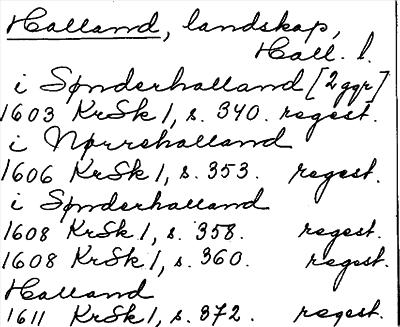 Halland, landskap,
Hall. l.
i Sønderhalland [2 ggr]
1603 KrSk 1, s. 340. regest.
i Nørrehalland
1606 KrSk 1, s. 353. regest.
i Sønderhalland
1608 KrSk 1, s. 358. regest.
1608 KrSk 1, s. 360. regest.
Halland
1611 KrSk 1, s. 372. regest.